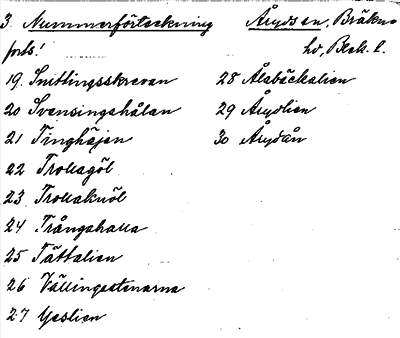 3. Nummerförteckning Åryds sn, Bräkne
forts. hd, Blek. l.
19. Snittingsskrevan
20 Svensingahålan
21 Tinghäjen
22 Trollagöl
23 Trollaknöl
24 Trångahalla
25 Tättalien
26 Vällingastenarna
27 Yeslien
28 Ålabäckalien
29 Årydlien
30 Årydån